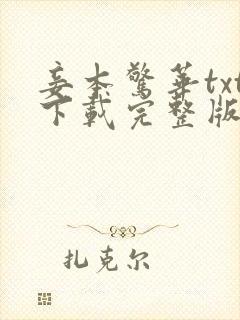 妾本驚華txt
下載完整版
扎克尔